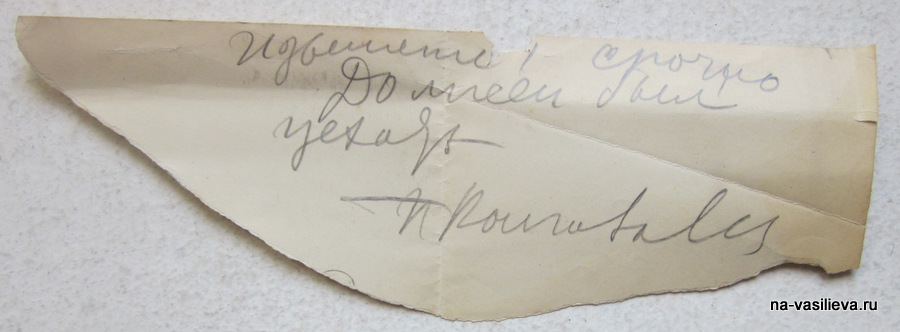 Извените, срочно
Должен был
уехать
П Кончаловский
na-vasilieva.ru